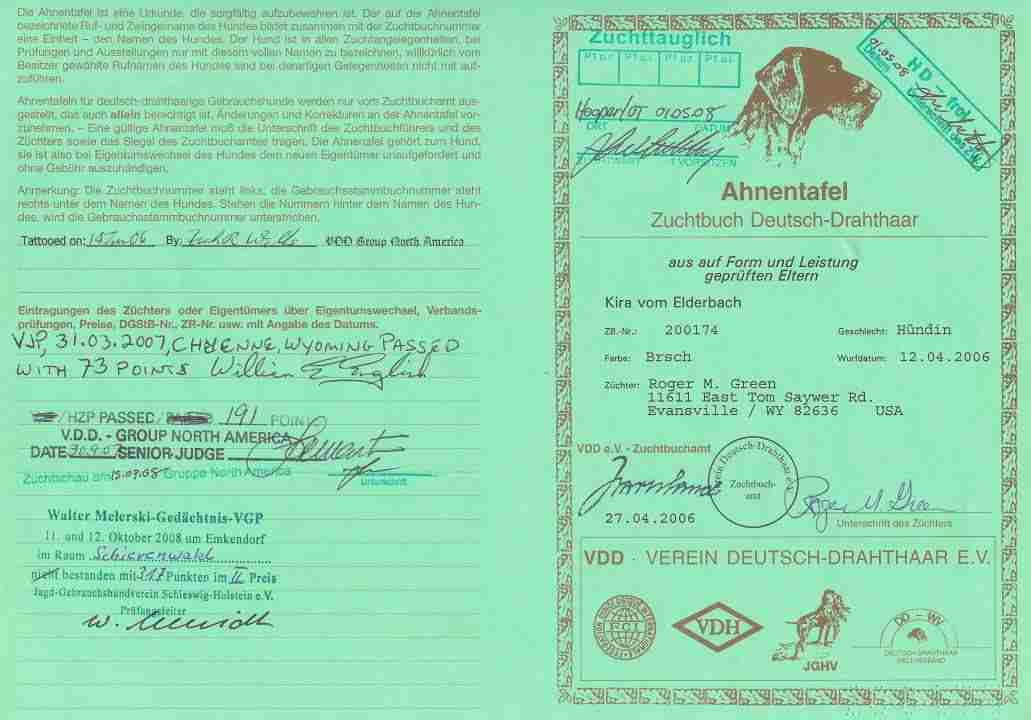 Die Ahnentafel ist eine Urkunde, die sorgfältig aufzubewahren ist. Der auf der Ahnentafel
bezeichnete Ruf- und Zwingername des Hundes bildet zusammen mit der Zuchtbuchnummer
eine Einheit – den Namen des Hundes. Der Hund ist in allen Zuchtangelegenheiten, bei
Prüfungen und Ausstellungen nur mit diesem vollen Namen zu bezeichnen, willkürlich vom
Besitzer gewählte Rufnamen des Hundes sind bei derartigen Gelegenheiten nicht mit auf-
zuführen.
Ahnentafeln für deutsch-drahthaarige Gebrauchshunde werden nur vom Zuchtbuchamt aus-
gestellt, das auch allein berechtigt ist, Änderungen und Korrekturen an der Ahnentafel vor-
zunehmen. – Eine gültige Ahnentafel muß die Unterschrift des Zuchtbuchführers und des
Züchters sowie das Siegel des Zuchtbuchamtes tragen. Die Ahnentafel gehört zum Hund,
sie ist also bei Eigentumswechsel des Hundes dem neuen Eigentümer unaufgefordert und
ohne Gebühr auszuhändigen.
Anmerkung: Die Zuchtbuchnummer steht links, die Gebrauchsstammbuchnummer steht
rechts unter dem Namen des Hundes. Stehen die Nummern hinter dem Namen des Hun-
des, wird die Gebrauchsstammbuchnummer unterstrichen.
Tattooed on: 15 Jun 06 By: VDD Group North America
Eintragungen des Züchters oder Eigentümers über Eigentumswechsel, Verbands-
prüfungen, Preise, DGStB-Nr., ZR-Nr. usw. mit Angabe des Datums.
VJP, 31.03.2007, CHEYENNE, WYOMING PASSED
WITH 73 POINTS William E English
/HZP PASSED/ 191 POIN
V.D.D. - GROUP NORTH AMERICA
DATE 30.9.07 SENIOR JUDGE
Zuchtschau am 15.07.08 Gruppe North America
Unterschrift
Walter Melerski-Gedächtnis-VGP
11. und 12. Oktober 2008 um Emkendorf
im Raum Schierenwald
nicht bestanden mit 317 Punkten im II Preis
Jagd-Gebrauchshundverein Schleswig-Holstein e.V.
Prüfungsleiter
Zuchttauglich
01.05.08
Datum
HD
frei
ORT
DATUM
Ahnentafel
Zuchtbuch Deutsch-Drahthaar
aus auf Form und Leistung
geprüften Eltern
Kira vom Elderbach
ZB.-Nr.: 200174 Geschlecht: Hündin
Farbe: Brsch Wurfdatum: 12.04.2006
Züchter: Roger M. Green
11611 East Tom Saywer Rd.
Evansville / WY 82636 USA
VDD e.V. - Zuchtbuchamt
Verein Deutsch-Drahthaar e.V.
Zuchtbuch-
amt
Roger M Green
27.04.2006
Unterschrift des Züchters
VDD - VEREIN DEUTSCH-DRAHTHAAR E.V.
FCI
VDH
JGHV
DD - WV
DEUTSCH-DRAHTHAAR
WELTVERBAND